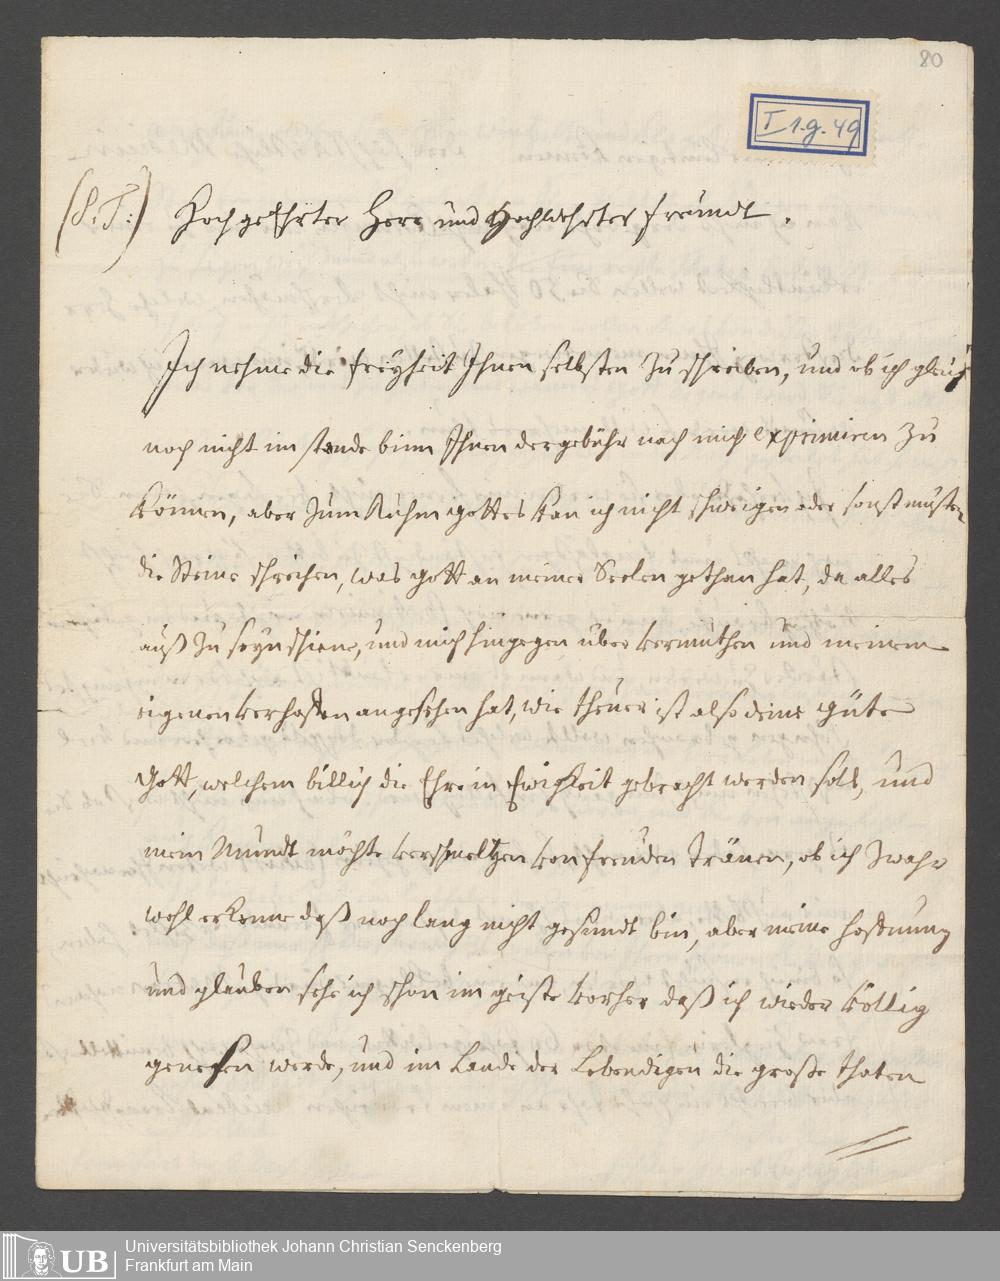 80
I 1.g.49
(S. T:) Hochgeehrter Herr und Hochwehrter freundt.
Ich nehme die freyheit Ihnen selbsten zu schreiben, und ob ich gleich
noch nicht im stande binn Ihnen der gebühr nach mich exprimiren zu
können, aber zum Ruhm gottes kan ich nicht schweigen oder sonst musten
die Steine schreihen, was gott an meiner Seelen gethan hat, da alles
auß zu seyn schiene, und mich hingegen über vermuthen und meinem
eigenen verhoffen angesehen hat, wie theuer ist also deine güte
Gott, welchem billich die Ehre in Ewigkeit gebracht werden soll, und
mein Mundt möchte verschmeltzen von freuden Tränen, ob ich zwahr
wohl erkenne daß noch lang nicht gesundt bin, aber meine hoffnung
und glauben sehe ich schon im geiste vorher daß ich wieder völlig
genesen werde, und im Lande der Lebendigen die große thaten
UB
Universitätsbibliothek Johann Christian Senckenberg
Frankfurt am Main